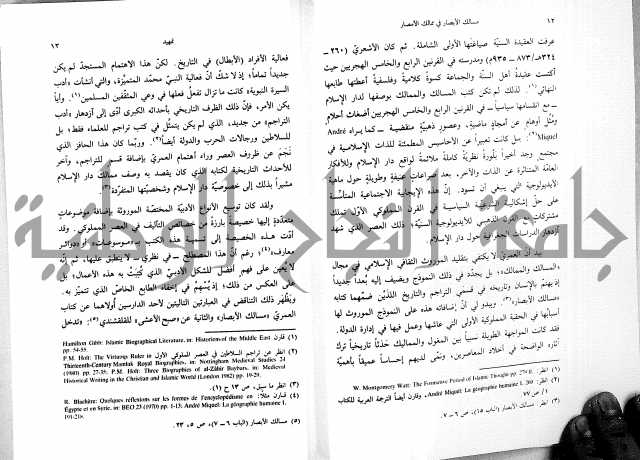 ١٢ مسالك الأبصار في ممالك الأمصار
عرفت العقيدة السنيّة صياغتها الأولى الشاملة. ثم كان الأشعريّ (٢٦٠ -
٣٢٤هـ/ ٨٧٣ - ٩٣٥م) ومدرسته في القرنين الرابع والخامس الهجريين حيث
أكتسبت عقيدة أهل السنّة والجماعة كسوة كلاميّة وفلسفيّة أعطتها طابعها
النهائي(١). لذلك لم تكن كتب المسالك والممالك بوصفها لدار الإسلام
- مع انقسامها سياسياً - في القرنين الرابع والخامس الهجريين أضغاث أحلام
ومُثُل أوهام عن أمجادٍ ماضيةٍ، وعصورٍ ذهبيّةٍ منقضية - كما يراه André
Miquel(٢) بل كانت تعبيراً عن الأحاسيس المطمئنة للذات الإسلامية في
مجتمعٍ وجد اخيراً بلورةً نظريةً كاملةً ملائمةً لواقع دار الإسلام وللأفكار
العامّة المتناثرة عن الذات والآخر، بعد صراعاتٍ عنيفةٍ وطويلةٍ حول ماهية
الأيديولوجية التي ينبغي أن تسود. إنّ هذه الإيجابية الاجتماعية المتأسّسة
على حلّ إشكالية الشرعية السياسية في القرن المملوكي الأوّل تملك
مشتركاتٍ مع القرن الذهبي للأيديولوجية السنيّة؛ ذلك العصر الذي شهد
ازدهار الدراسات الجغرافية حول دار الإسلام.
بيد أنّ العمريّ لا يكتفي بتقليد الموروث الثقافي الإسلامي في مجال
«المسالك والممالك»؛ بل يجدّد في ذلك النموذج ويضيف إليه بعداً جديداً
إذ يهتمّ بالإنسان وتاريخه في قسمي التراجم والتاريخ اللذين ضمّهما كتابه
«مسالك الأبصار»(٣). ويبدو لي أنّ إضافاته هذه على النموذج الموروث لها
أسبابها في الحقبة المملوكية الأولى التي عاشها وعمل فيها في إدارة الدولة.
فقد كانت المواجهة الطويلة نسبياً بين المغول والمماليك حَدَثاً تاريخياً ترك
آثاره الواضحة في أخلاد المعاصرين، ونمّى لديهم إحساساً عميقاً بأهميّة
(١) W. Montgomery Watt: The Formative Period of Islamic Thought pp. 279 ff.
(٢) انظر: André Miquel: La géographie humaine I. 269، وقارن أيضاً الترجمة العربية للكتاب
١/ ص ٧٧.
(٣) انظر: مسالك الأبصار (الباب ١٥)، ص ٦ - ٧.
تمهيد ١٣
فعالية الأفراد (الأبطال) في التاريخ. لكنّ هذا الاهتمام المستجدّ لم يكن
جديداً تماماً؛ إذ لا شكّ أنّ فعالية النبيّ محمّد المتميّزة، والتي أنشأت «أدب
السيرة النبوية» كانت ما تزال تفعلُ فعلها في وعي المثقّفين المسلمين(١). وأياً
يكن الأمر، فإنّ ذلك الظرف التاريخي بأحداثه الكبرى أدّى إلى ازدهار «أدب
التراجم» من جديد، الذي لم يكن يتمثّل في كتب تراجم للعلماء فقط؛ بل
للسلاطين ورجالات الحرب والدولة أيضاً(٢). وربّما كان هذا الحافز الذي
نَجَمَ عن ظروف العصر وراء أهتمام العمريّ بإضافة قسم للتراجم، وآخر
للأحداث التاريخية لكتابه الذي كان يقصد به وصف ممالك دار الإسلام
مشيراً بذلك إلى خصوصيّة دار الإسلام وشخصيّتها المتفرّدة(٣).
ولقد كان توسيع الأنواع الأدبيّة المختصّة الموروثة بإضافة موضوعات
متعدّدة إليها خصيصةً بارزةً من خصائص التأليف في العصر المملوكي. وقد
أدّت هذه الخصيصة إلى تسمية هذه الكتب بـ«موسوعات» أو «دوائر
معارف»(٤) رغم أنّ هذا المصطلح - في نظري - لا ينطبق عليها، ثم إنّه
لا يُعين على فهم أفضل للشكل الأدبيّ الذي كُتِبَتْ به هذه الأعمال؛ بل
على العكس من ذلك؛ إذ يُسْهِمُ في إخفاء الطابع الخاصّ الذي تتميّز به.
ويُظْهَر ذلك التناقض في العبارتين التاليتين لأحد الدارسين أولاهما عن كتاب
العمريّ «مسالك الأبصار» والثانية عن «صبح الأعشى» للقلقشندي(٥): «تدخل
(١) قارن Hamilton Gibb: Islamic Biographical Literature. in: Historians of the Middle East
pp. 54-55.
(٢) انظر عن تراجم السلاطين في العصر المملوكي الأول P.M. Holt: The Virtuous Ruler in
Thirteenth-Century Mamluk Royal Biographies, in: Nottingham Medieval Studies 24
(1980) pp. 27-35; P.M. Holt: Three Biographies of al-Zāhir Baybars. in: Medieval
Historical Writing in the Christian and Islamic World (London 1982) pp. 19-29.
(٣) انظر ما سبق، ص ١٣ ح (١).
(٤) قارن مثلاً: R. Blachère: Quelques réflexions sur les formes de l'encyclopédisme en
Égypte et en Syrie. in: BEO 23 (1970) pp. 1-13; André Miquel: La géographie humaine I.
191-218.
(٥) مسالك الأبصار (الباب ٦ - ٧)، ص ٥، ٢٣.
جامعة النجاح الوطنية